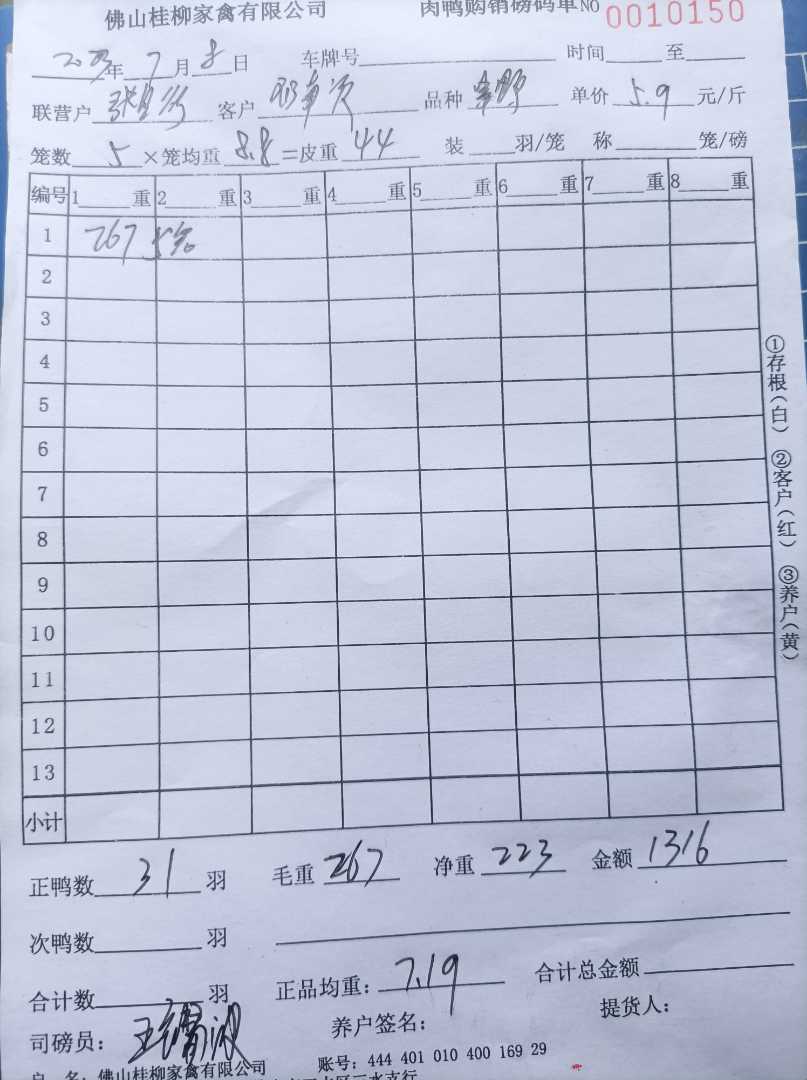 佛山桂柳家禽有限公司 肉鸭购销磅码单NO 0010150
年 7 月 8 日 车牌号 时间 至
联营户 客户 品种 单价 5.9 元/斤
笼数 5 ×笼均重 8.8 =皮重 44 装 羽/笼 称 笼/磅
编号 1 重 2 重 3 重 4 重 5 重 6 重 7 重 8 重
1 267 5笼
2
3
4
5
6
7
8
9
10
11
12
13
小计
①存根(白) ②客户(红) ③养户(黄)
正鸭数 31 羽 毛重 267 净重 223 金额 1316
次鸭数 羽
合计数 羽 正品均重: 7.19 合计总金额
司磅员: 养户签名: 提货人:
户 名: 佛山桂柳家禽有限公司 账号: 444 401 010 400 169 29